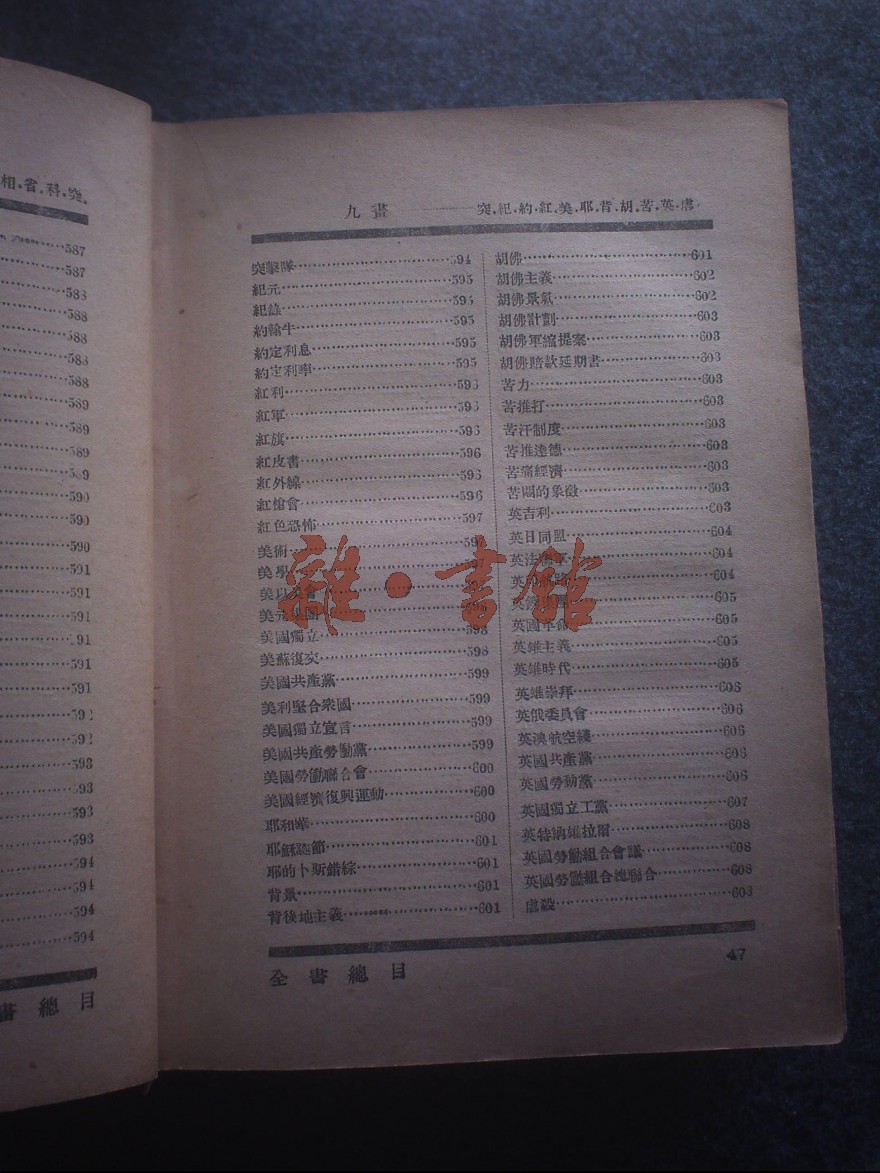 相．省．科．突．
587
587
583
588
588
583
588
589
589
589
589
590
590
590
591
591
591
591
591
591
592
592
593
593
593
593
594
594
594
594
書總目
九畫 —— 突．紀．約．紅．美．耶．背．胡．苦．英．虐．
突擊隊 594
紀元 595
紀錄 595
約翰牛 595
約定利息 595
約定利率 595
紅利 595
紅軍 595
紅旗 596
紅皮書 596
紅外線 596
紅槍會 596
紅色恐怖 597
美術 597
美學
美以美會
美元集團
美國獨立 598
美蘇復交 598
美國共產黨 599
美利堅合衆國 599
美國獨立宣言 599
美國共產勞動黨 599
美國勞働聯合會 600
美國經濟復興運動 600
耶和華 600
耶穌誕節 601
耶的卜斯錯綜 601
背景 601
背後地主義 601
胡佛 601
胡佛主義 602
胡佛景氣 602
胡佛計劃 603
胡佛軍縮提案 603
胡佛賠款延期書 603
苦力 603
苦推打 603
苦汗制度 603
苦推達德 603
苦痛經濟 603
苦悶的象徵 603
英吉利 603
英日同盟 604
英法 604
英 604
英 605
英國革命 605
英雄主義 605
英雄時代 605
英雄崇拜 606
英俄委員會 606
英澳航空綫 606
英國共產黨 606
英國勞動黨 606
英國獨立工黨 607
英特納雄拉爾 608
英國勞働組合會議 608
英國勞働組合總聯合 608
虐殺 608
全書總目
47
雜·書館